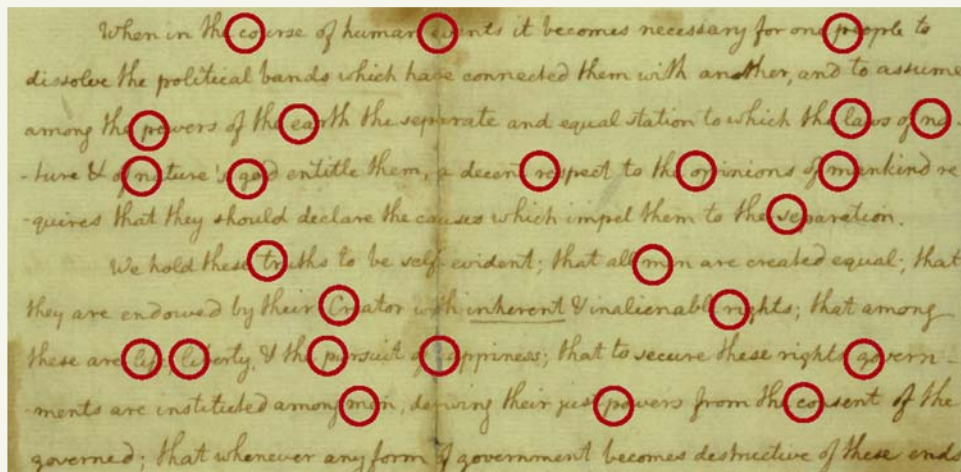 When in the course of human events it becomes necessary for one people to
dissolve the political bands which have connected them with another, and to assume
among the powers of the earth the separate and equal station to which the laws of na-
-ture & of nature's god entitle them, a decent respect to the opinions of mankind re
-quires that they should declare the causes which impel them to the separation.
We hold these truths to be self-evident; that all men are created equal; that
they are endowed by their Creator with inherent & inalienable rights; that among
these are life, liberty, & the pursuit of happiness; that to secure these rights, govern-
-ments are instituted among men, deriving their just powers from the consent of the
governed; that whenever any form of government becomes destructive of these ends